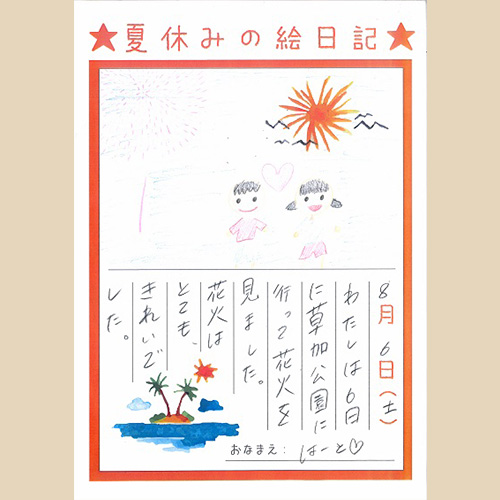 ★夏休みの絵日記★
8月6日(土)
わたしは6日
に草加公園に
行って花火を
見ました。
花火は
とても、
きれいで
した。
おなまえ: はーと♡